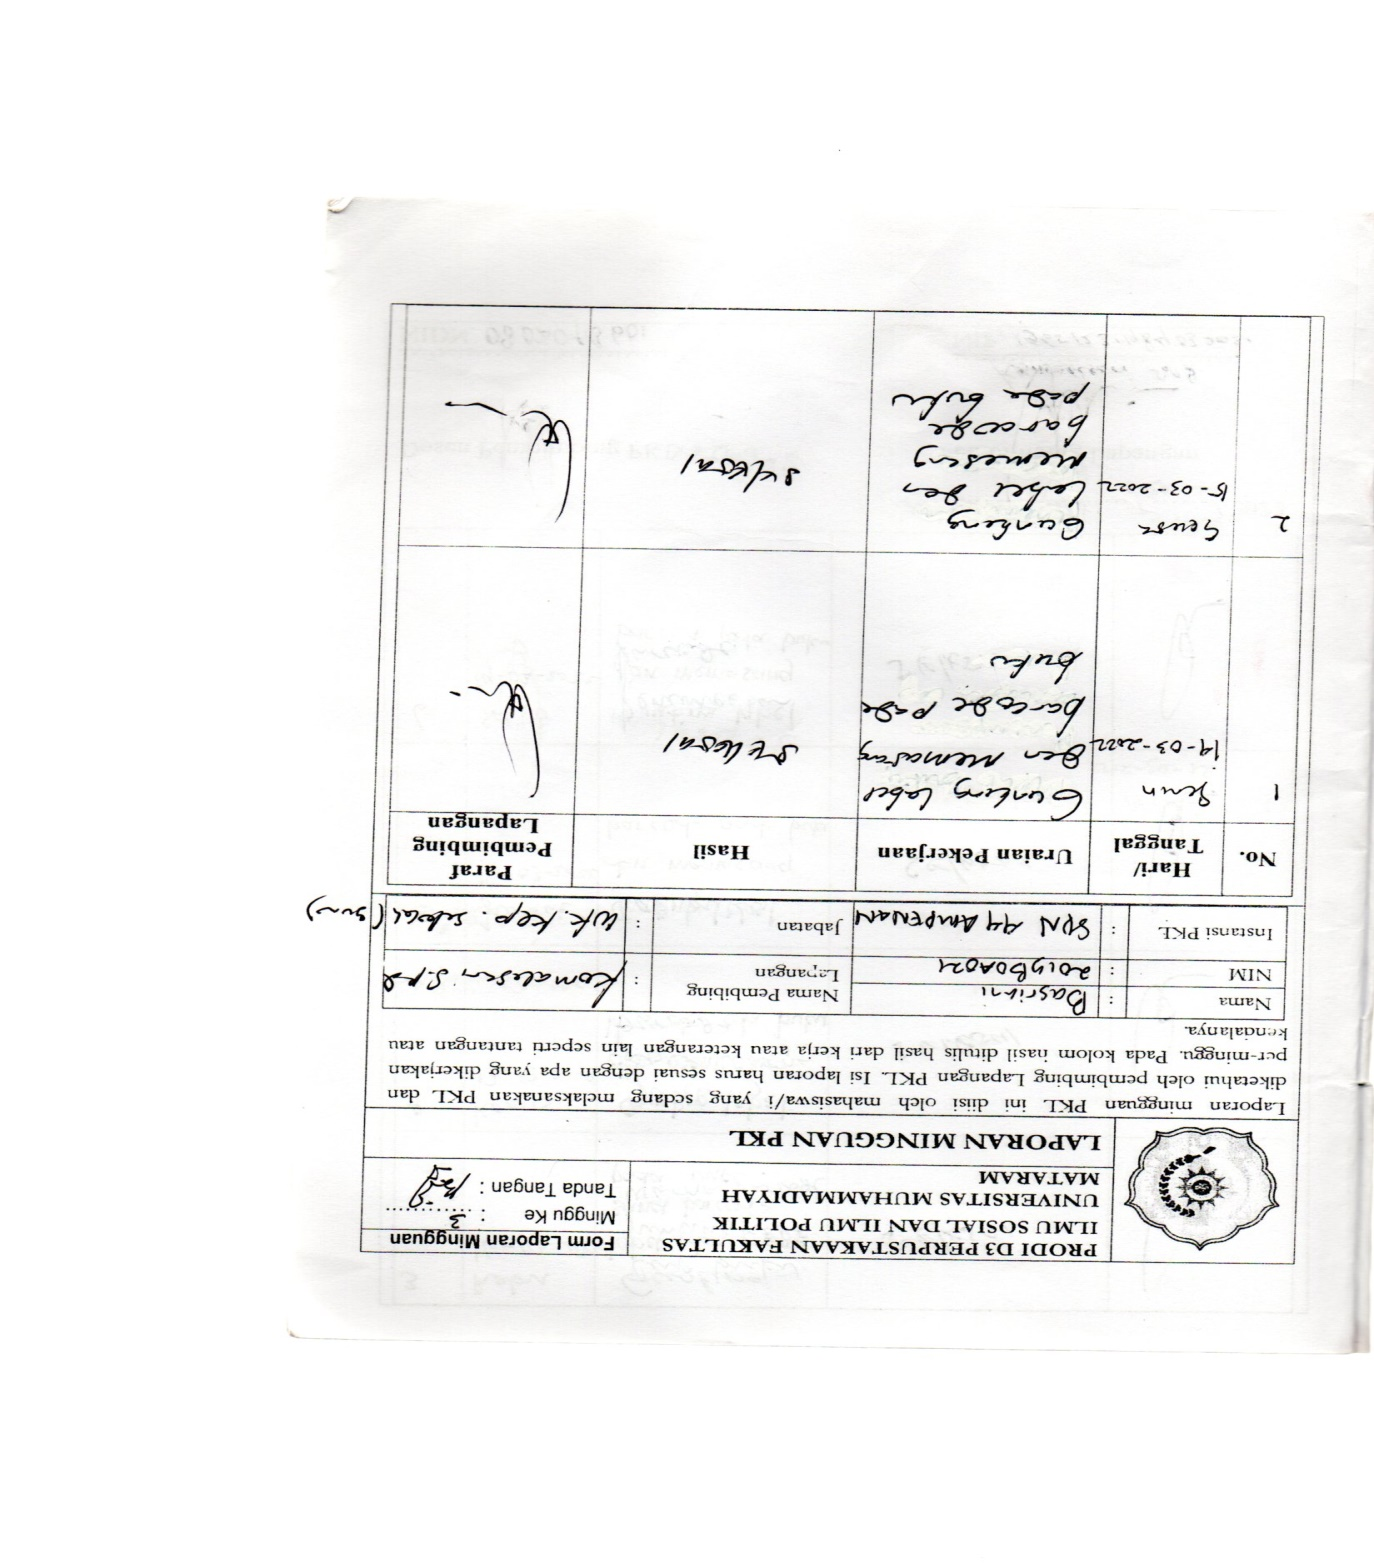 PRODI D3 PERPUSTAKAAN FAKULTAS
ILMU SOSIAL DAN ILMU POLITIK
UNIVERSITAS MUHAMMADIYAH
MATARAM
Form Laporan Mingguan
Minggu Ke : 3
Tanda Tangan :
LAPORAN MINGGUAN PKL
Laporan mingguan PKL ini diisi oleh mahasiswa/i yang sedang melaksanakan PKL dan
diketahui oleh pembimbing Lapangan PKL. Isi laporan harus sesuai dengan apa yang dikerjakan
per-minggu. Pada kolom hasil ditulis hasil dari kerja atau keterangan lain seperti tantangan atau
kendalanya.
Nama : Basriani
NIM : 2019B0A021
Nama Pembibing
Lapangan : Komalasari S.pd
Instansi PKL : SDN 44 AMPENAN
Jabatan : Wk. Kep. sekolah
No. Hari/ Tanggal Uraian Pekerjaan Hasil Paraf Pembimbing Lapangan
1 Senin
14-03-2022
Gunting label
dan memasang
barcode pada
buku
SELESAI
2 Selasa
15-03-2022
Gunting
label dan
memasang
barcode
pada buku
SELESAI